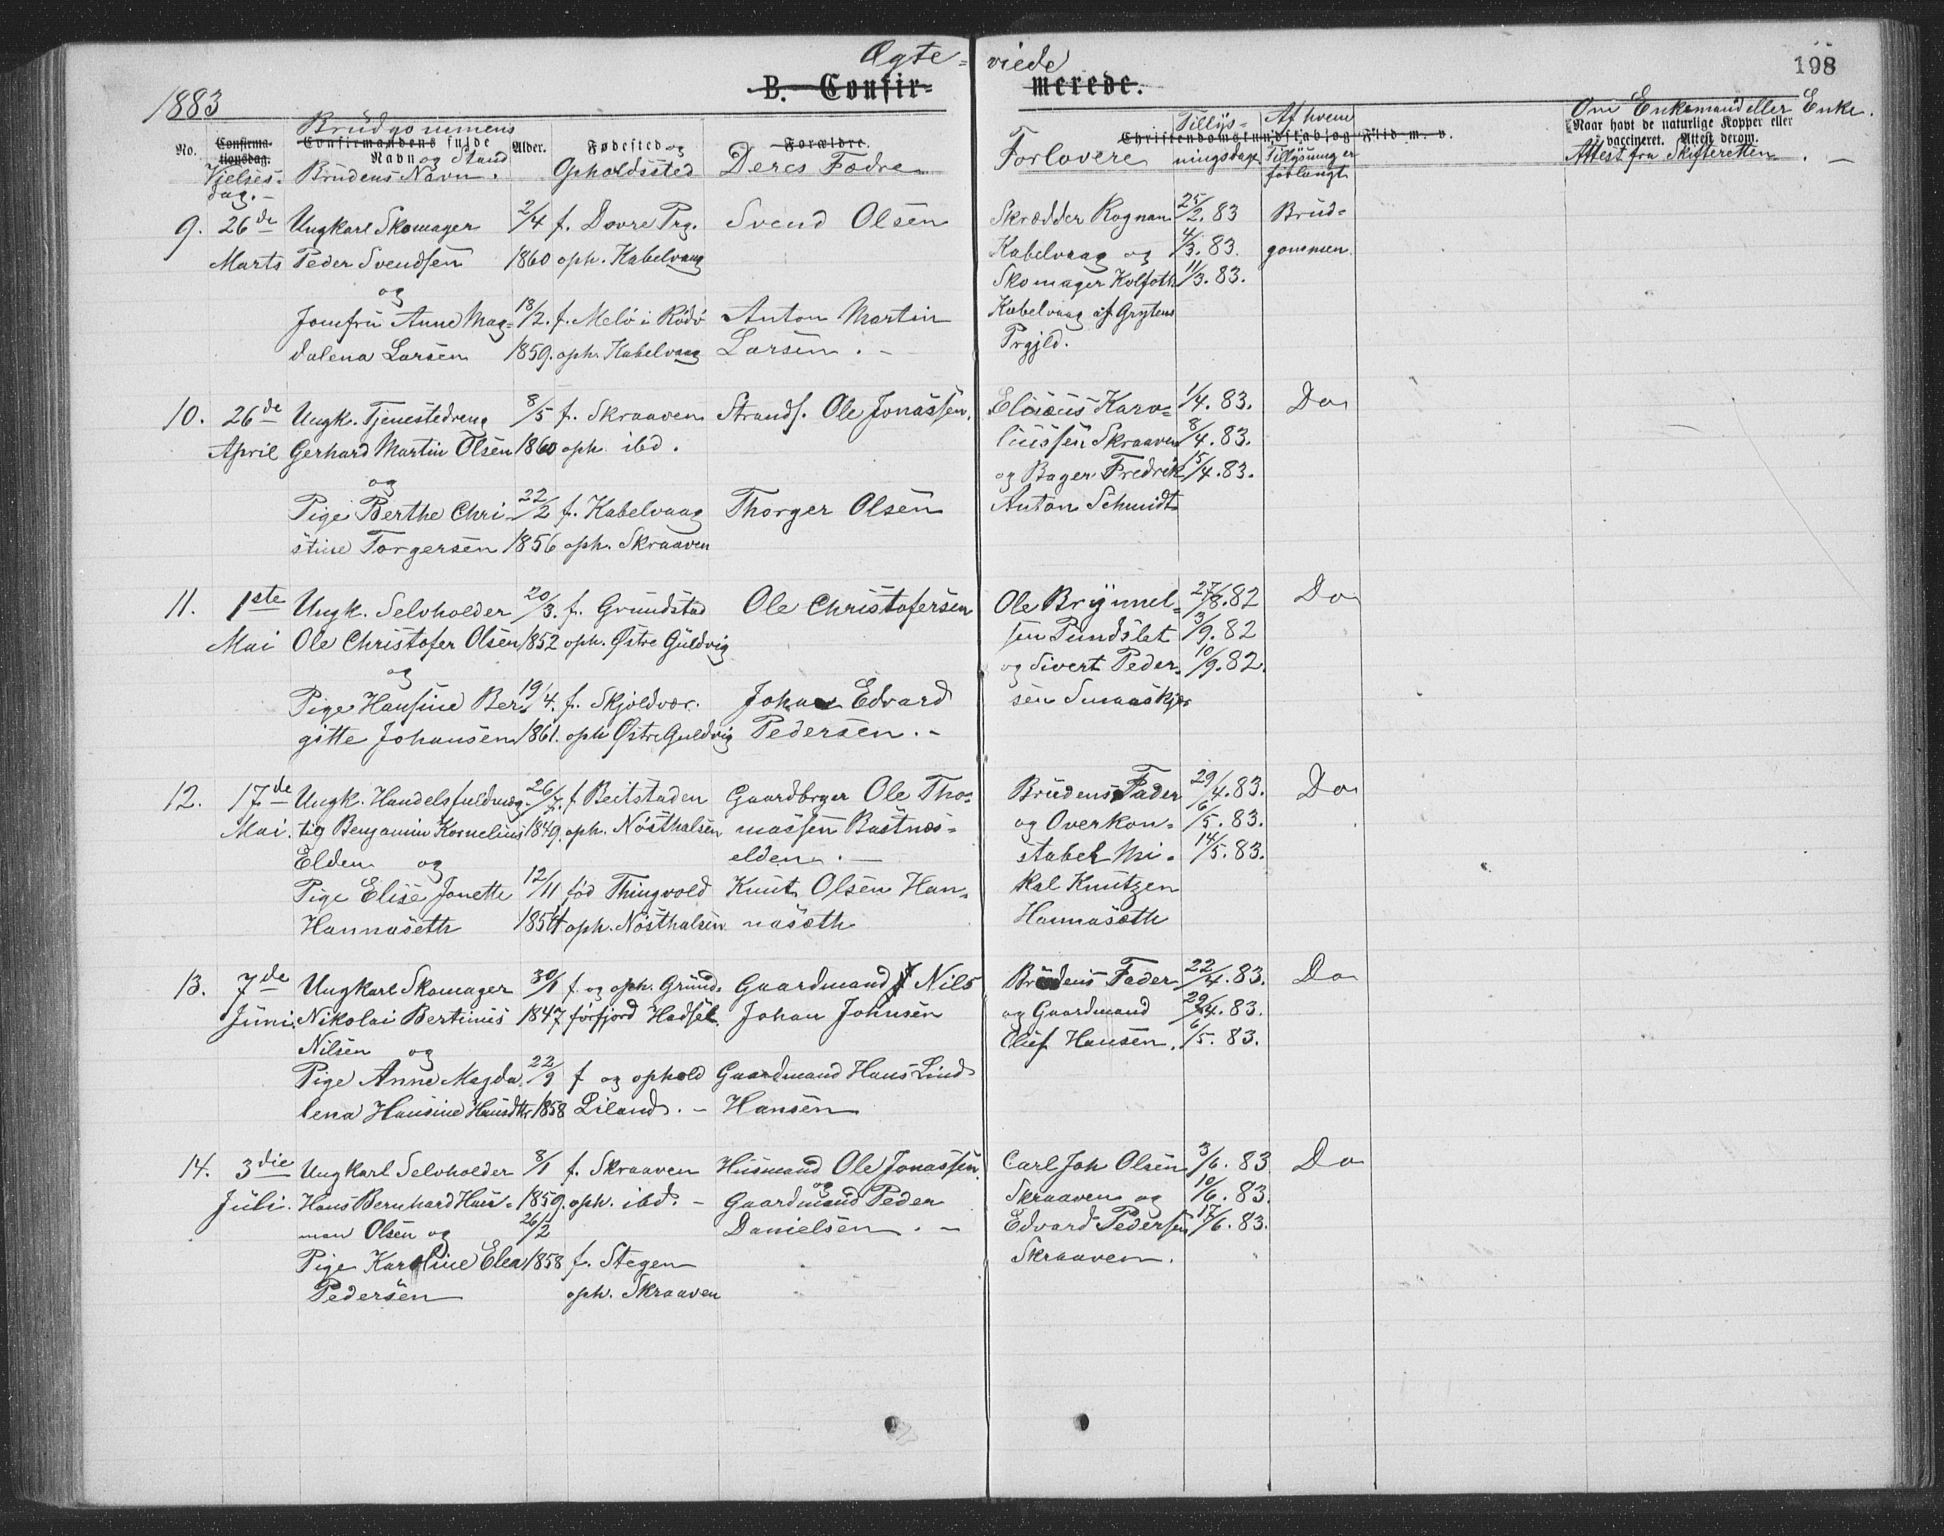 Ægte= viede
198
1883
B. Confir= merede.
No.
Confirma-
tionsdag.
Vielses-
dag. -
Brudgommens
Confirmandens fulde
Navn og Stand
Brudens Navn.
Alder.
Fødested og
Opholdssted
Forældre.
Deres Fædre
Forlovere
Christendomskundskab og Flid m. v.
Tillys-
ningsdage
Af hvem
Tillysning er
forlangt
Om Enkemand eller Enke.
Naar havt de naturlige Kopper eller
vaccineret. Attest derom.
Attest fra Skifteretten. -
9. 26de Ungkarl Skomager 2/4 f. Dovre Prg. Svend Olsen Skrædder Rognan 25/2. 83 Brud=
Marts Peder Svendsen 1860 oph. Kabelvaag Kabelvaag og 4/3. 83. gommen.
og Skomager Kolfoth 11/3. 83.
Jomfru Anne Mag= 18/2. f. Melö i Rödö Anton Martin Kabelvaag af Grytens
dalena Larsen 1859. oph. Kabelvaag Larsen. - Prgjld.
10. 26de Ungk. Tjenestedreng 8/5 f. Skraaven Strands. Ole Jonassen. Elisæus Karo= 1/4. 83. Do
April Gerhard Martin Olsen 1860 oph. ibd. liussen Skraaven 8/4. 83.
og og Bager Fredrik 15/4. 83.
Pige Berthe Chri- 22/2 f. Kabelvaag Thorger Olsen Anton Schmidt
stine Torgersen 1856 oph. Skraaven
11. 1ste Ungk. Selvholder 20/3. f. Grundstad Ole Christofersen Ole Brynnel= 27/8. 82 Do
Mai Ole Christofer Olsen 1852 oph. Østre Guldvig sen Pundslet 3/9. 82
og og Sivert Peder- 10/9. 82.
Pige Hansine Ber- 19/4. f. Skjoldvær. Johan Edvard sen Smaaskjær
gitte Johansen 1861. oph Østre Guldvig Pedersen. -
12. 17de Ungk. Handelsfuldmæg- 26/7. f Beitstaden Gaardbrger Ole Tho= Brudens Fader 29/4. 83. Do
Mai. tig Benjamin Kornelius 1849. oph. Nösthalsen massen Bastnæs= og Overkon= 6/5. 83.
Elden og elden. - stabel Mi= 14/5. 83.
Pige Elise Jonette 12/11 fød Thingvold Knut Olsen Han= kal Knutzen
Hannaseth 1854 oph. Nösthalsen nasæth Hannasæth
13. 7de Ungkarl Skomager 30/1 f. og oph. Grund= Gaardmand Nils Brudens Fader 22/4. 83. Do
Juni Nikolai Bertinus 1847 førfjord Hadsel. Johan Johnsen og Gaardmand 29/4. 83.
Nilsen og Oluf Hansen. 6/5. 83.
Pige Anne Magda- 22/9 f og ophold Gaardmand Hans Lind
lena Hansine Hansdtr 1858 Liland. - Hansen
14. 3die Ungkarl Selvholder 8/1 f. Skraaven Husmand Ole Jonassen. Carl Joh Olsen 3/6. 83 Do
Juli. Hans Bernhard Haus- 1859. oph. ibd. - og Gaardmand Peder Skraaven og 10/6. 83.
man Olsen og 26/2 Danielsen. - Edvard Pedersen 17/6. 83.
Pige Karoline Elea 1858 f. Stegen Skraaven.
Pedersen oph. Skraaven